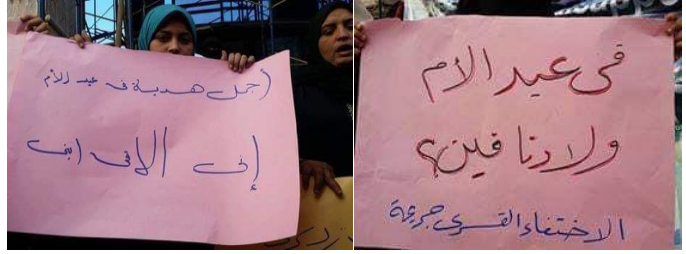 أجمل هدية فى عيد الأم
إنى ألاقى ابنى
فى عيد الأم
ولادنا فين؟
الاختفاء القسرى جريمة